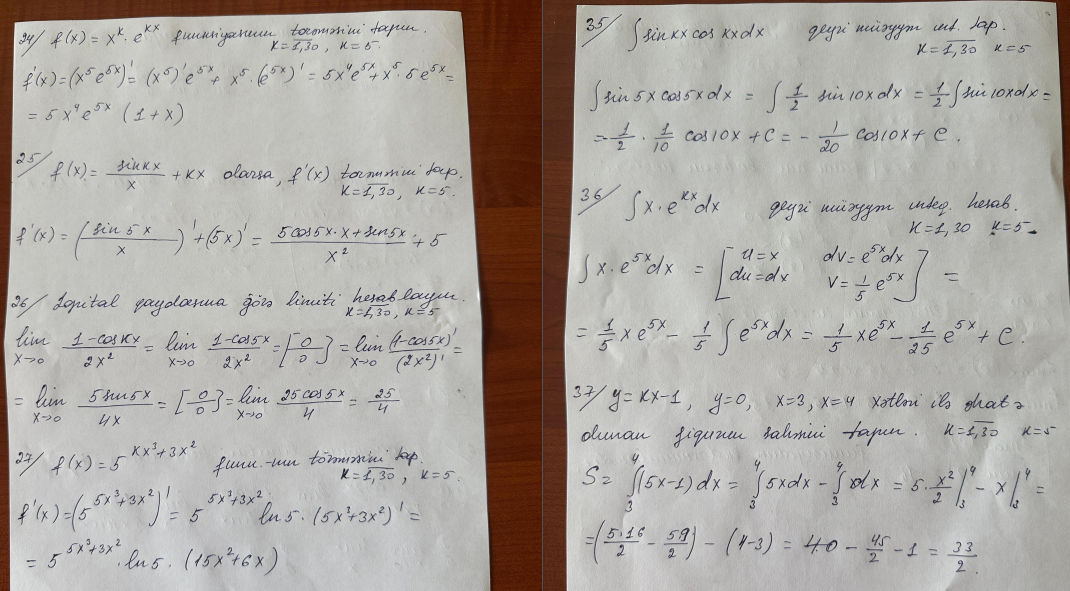 24/ f(x) = x^k · e^{kx} funksiyasının törəməsini tapın.
k=1,30, k=5.
f'(x) = (x^5 e^{5x})' = (x^5)' e^{5x} + x^5 · (e^{5x})' = 5x^4 e^{5x} + x^5 · 5 e^{5x} =
= 5x^4 e^{5x} (1+x)
25/ f(x) = sin kx / x + kx olarsa, f'(x) törəməsini tap.
k=1,30, k=5.
f'(x) = (sin 5x / x)' + (5x)' = (5cos5x · x + sin5x) / x^2 + 5
26/ Lopital qaydasına görə limiti hesablayın.
k=1,30, k=5
lim x→0 (1-cos kx) / 2x^2 = lim x→0 (1-cos5x) / 2x^2 = [0/0] = lim x→0 (1-cos5x)' / (2x^2)' =
= lim x→0 5sin5x / 4x = [0/0] = lim x→0 25cos5x / 4 = 25/4
27/ f(x) = 5^{kx^3+3x^2} funk.-nın törəməsini tap.
k=1,30, k=5.
f'(x) = (5^{5x^3+3x^2})' = 5^{5x^3+3x^2} ln5 · (5x^3+3x^2)' =
= 5^{5x^3+3x^2} · ln5 · (15x^2+6x)
35/ ∫ sin kx cos kx dx qeyri müəyyən int. tap.
k=1,30 k=5
∫ sin5x cos5x dx = ∫ 1/2 sin10x dx = 1/2 ∫ sin10x dx =
= -1/2 · 1/10 cos10x + C = - 1/20 cos10x + C.
36/ ∫ x · e^{kx} dx qeyri müəyyən inteq. hesab.
k=1,30 k=5
∫ x · e^{5x} dx = [u=x dv=e^{5x}dx
du=dx v=1/5 e^{5x}] =
= 1/5 x e^{5x} - 1/5 ∫ e^{5x} dx = 1/5 x e^{5x} - 1/25 e^{5x} + C.
37/ y=kx-1, y=0, x=3, x=4 xətləri ilə əhatə
olunan fiqurun sahəsini tapın. k=1,30 k=5
S = ∫_3^4 (5x-1)dx = ∫_3^4 5x dx - ∫_3^4 dx = 5 · x^2/2 |_3^4 - x |_3^4 =
= (5·16/2 - 59/2) - (4-3) = 40 - 45/2 - 1 = 33/2.